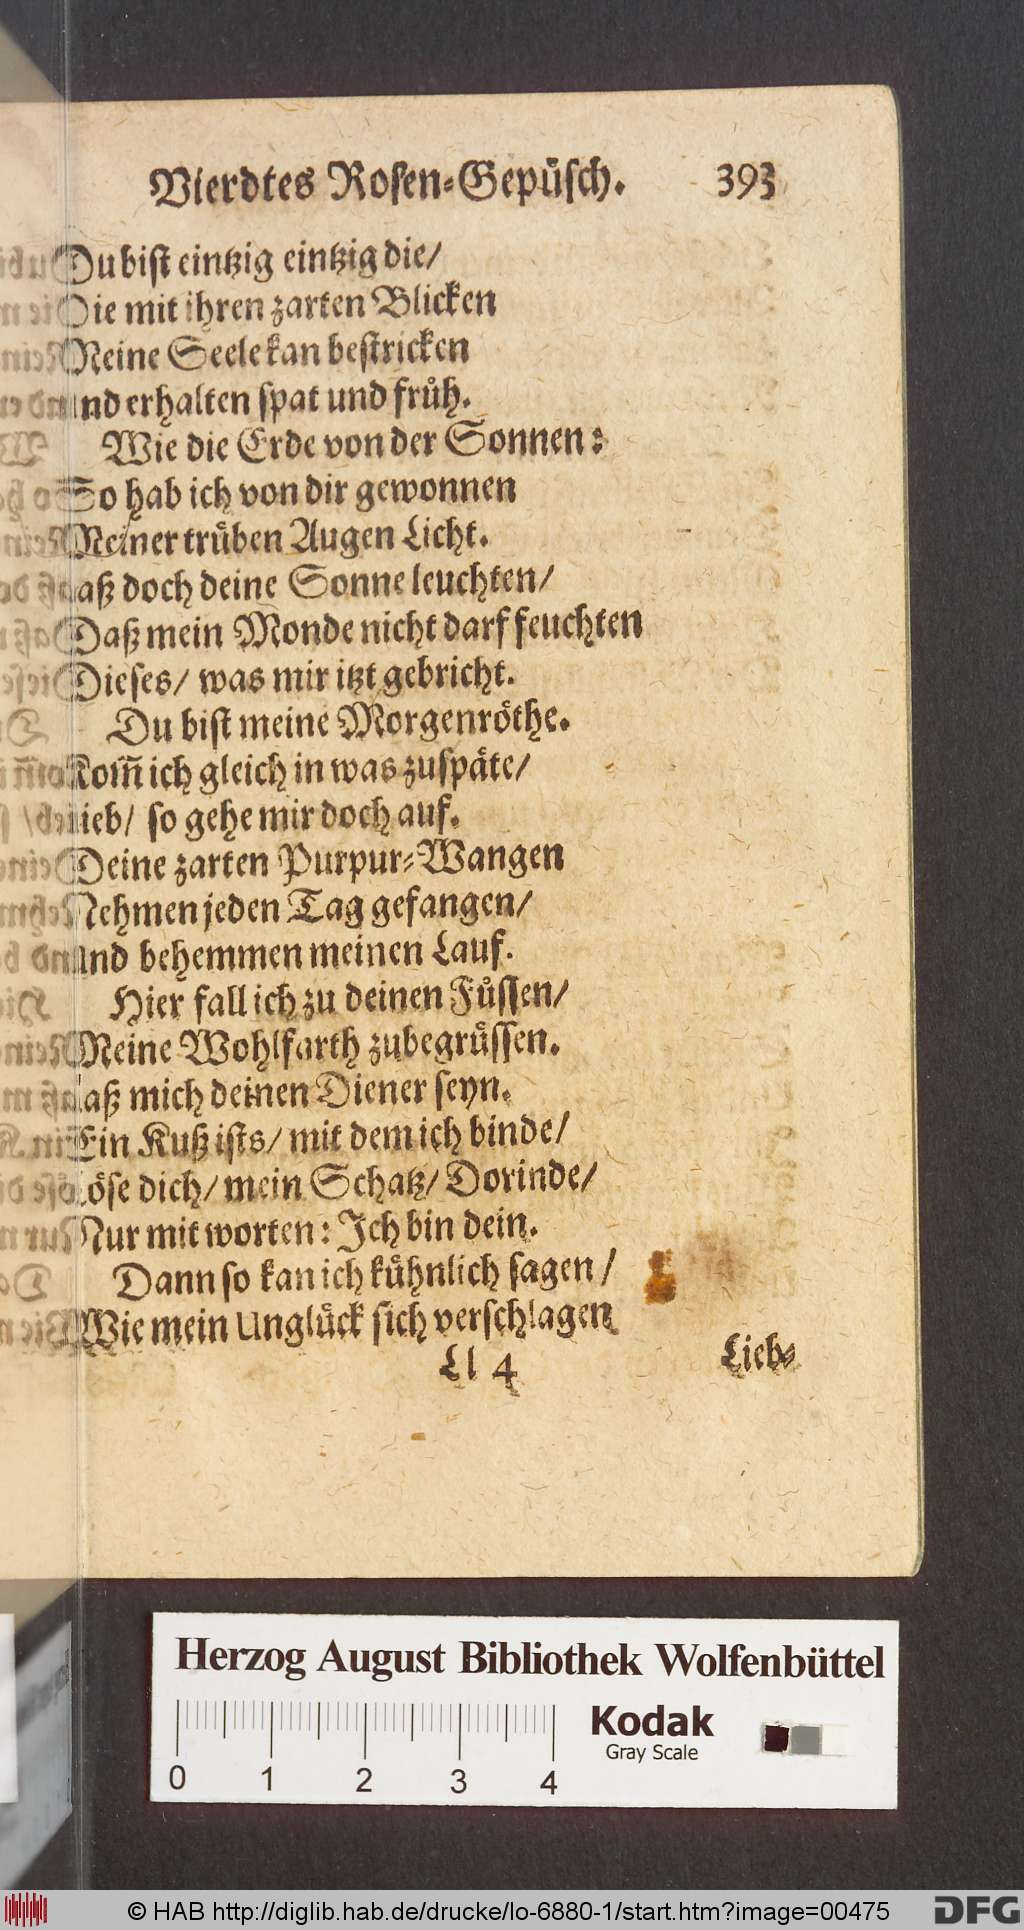 Vierdtes Rosen-Gepüsch. 393
Du bist eintzig eintzig die/
Die mit ihren zarten Blicken
Meine Seele kan bestricken
und erhalten spat und früh.
Wie die Erde von der Sonnen:
So hab ich von dir gewonnen
Meiner trüben Augen Licht.
Laß doch deine Sonne leuchten/
Daß mein Monde nicht darf feuchten
Dieses/ was mir itzt gebricht.
Du bist meine Morgenröthe.
Kom̃ ich gleich in was zuspäte/
Lieb/ so gehe mir doch auf.
Deine zarten Purpur-Wangen
Nehmen jeden Tag gefangen/
und behemmen meinen Lauf.
Hier fall ich zu deinen Füssen/
Meine Wohlfarth zubegrüssen.
Laß mich deinen Diener seyn.
Ein Kuß ists/ mit dem ich binde/
Löse dich/ mein Schatz/ Dorinde/
Nur mit worten: Ich bin dein.
Dann so kan ich kühnlich sagen/
Wie mein Unglück sich verschlagen
Ll 4 Lieb-
Herzog August Bibliothek Wolfenbüttel
0 1 2 3 4
Kodak
Gray Scale
© HAB http://diglib.hab.de/drucke/lo-6880-1/start.htm?image=00475
DFG